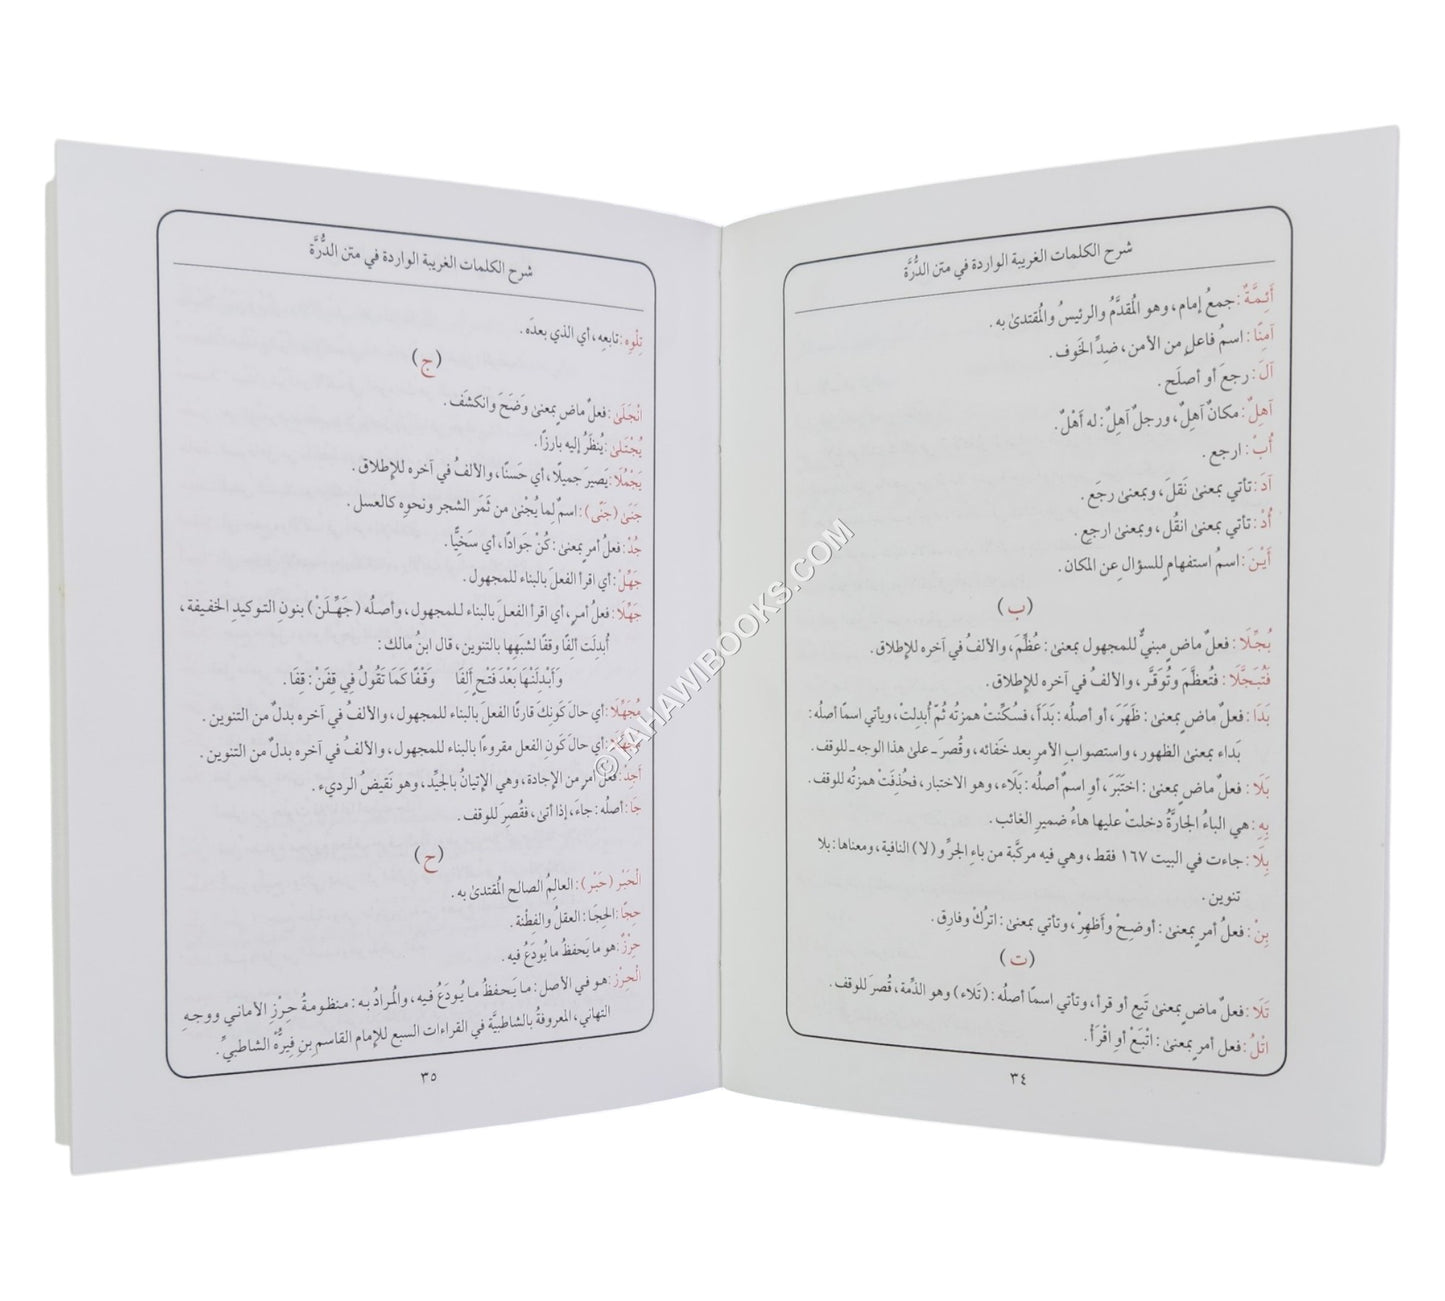 شرح الكلمات الغريبة الواردة في متن الدُّرَّة
أَئِمَّةٌ: جمعُ إمام، وهو المُقدَّمُ والرئيسُ والمُقتدىٰ به.
آمِنًا: اسمُ فاعلٍ من الأمن، ضدِّ الخَوف.
آلَ: رجعَ أو أصلَح.
آهِلٌ: مكانٌ آهِلٌ، ورجلٌ آهِلٌ: له أَهْلٌ.
أُبْ: ارجع.
آدَ: تأتي بمعنىٰ نَقلَ، وبمعنىٰ رجَع.
أُدْ: تأتي بمعنىٰ انقُل، وبمعنىٰ ارجع.
أَيْنَ: اسمُ استفهامٍ للسؤالِ عن المكان.
(ب)
بُجِّلَا: فعلٌ ماضٍ مبنيٌّ للمجهول بمعنىٰ: عُظِّمَ، والألفُ في آخره للإطلاق.
فَتُبَجَّلَا: فتُعظَّمَ وتُوقَّر، والألفُ في آخره للإطلاق.
بَدَا: فعلٌ ماضٍ بمعنىٰ: ظَهَرَ، أو أصلُه: بَدَأَ، فسُكِّنتْ همزتُه ثمّ أُبدِلتْ، ويأتي اسمًا أصلُه:
بَداء بمعنىٰ الظهور، واستصوابِ الأمرِ بعد خَفائه، وقُصرَ ـ علىٰ هذا الوجه ـ للوقف.
بَلَا: فعلٌ ماضٍ بمعنىٰ: اختَبَرَ، أو اسمٌ أصلُه: بَلاء، وهو الاختبار، فحُذِفَتْ همزتُه للوقف.
بِهِ: هي الباءُ الجارَّةُ دخلتْ عليها هاءُ ضميرِ الغائب.
بِلَا: جاءت في البيت ١٦٧ فقط، وهي فيه مركَّبة من باءِ الجرِّ و(لا) النافية، ومعناها: بلا
تنوين.
بِنْ: فعلُ أمرٍ بمعنىٰ: أوضِحْ وأَظهِرْ، وتأتي بمعنىٰ: اترُكْ وفارِق.
(ت)
تَلَا: فعلٌ ماضٍ بمعنىٰ تَبِع أو قرأ، وتأتي اسمًا أصلُه: (تَلاء) وهو الذِّمة، قُصرَ للوقف.
اتْلُ: فعل أمرٍ بمعنىٰ: اتْبَعْ أو اِقْرَأْ.
٣٤
شرح الكلمات الغريبة الواردة في متن الدُّرَّة
تِلْوِه: تابعِه، أي الذي بعدَه.
(ج)
انْجَلَىٰ: فعلٌ ماضٍ بمعنىٰ وَضَحَ وانكشَف.
يُجْتَلىٰ: يُنظَرُ إليه بارزًا.
يَجْمُلَا: يَصيرَ جميلًا، أي حَسنًا، والألفُ في آخره للإطلاق.
جَنَىٰ (جَنًى): اسمٌ لِما يُجْنىٰ من ثمَر الشجر ونحوِه كالعسل.
جُدْ: فعلُ أمرٍ بمعنىٰ: كُنْ جَوادًا، أي سَخيًّا.
جَهِّلْ: أي اقرأ الفعلَ بالبناء للمجهول.
جَهِّلَا: فعلُ أمرٍ، أي اقرأ الفعلَ بالبناء للمجهول، وأصلُه (جَهِّلَنْ) بنونِ التوكيدِ الخفيفة،
أُبدِلَت ألفًا وقفًا لشبَهِها بالتنوين، قال ابنُ مالك:
وَأَبْدِلَنْهَا بَعْدَ فَتْحٍ أَلِفَا وَقْفًا كَمَا تَقُولُ فِي قِفَنْ: قِفَا.
مُجَهِّلَا: أي حالَ كونِكَ قارئًا الفعلَ بالبناء للمجهول، والألفُ في آخره بدلٌ من التنوين.
مُجَهَّلَا: أي حالَ كونِ الفعل مقروءًا بالبناء للمجهول، والألفُ في آخره بدلٌ من التنوين.
أَجِدْ: فعلُ أمرٍ من الإجادة، وهي الإتيانُ بالجيِّد، وهو نَقيضُ الرديء.
جَا: أصلُه: جاءَ، إذا أتىٰ، فقُصِرَ للوقف.
(ح)
الْحَبْر (حَبْر): العالِمُ الصالح المُقتدىٰ به.
حِجًا: الحِجَا: العقلُ والفِطْنة.
حِرْزٌ: هو ما يَحفظُ ما يُودَعُ فيه.
الْحِرْز: هو في الأصل: ما يَحفظُ ما يُودَعُ فيه، والمُرادُ به: منظومةُ حِرْزِ الأماني ووجهِ
التهاني، المعروفةُ بالشاطبيَّة في القراءات السبع للإمام القاسمِ بنِ فِيرُّهْ الشاطبيِّ.
٣٥
©TAHAWIBOOKS.COM